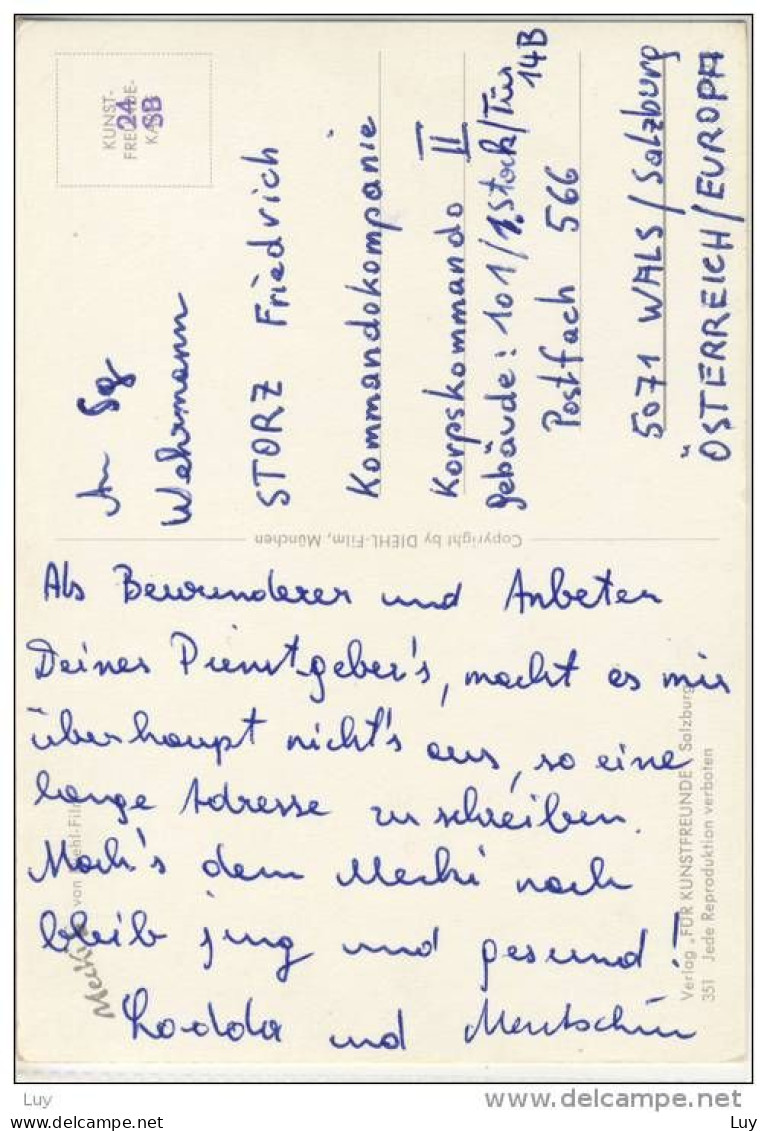 KUNST-
FREUNDE-
KARTE
24
SB
An Sg
Wehrmann
STORZ Friedrich
Kommandokompanie
Korpskommando II
Gebäude: 101/1.Stock/Tür 14B
Postfach 566
5071 WALS/Salzburg
ÖSTERREICH/EUROPA
Copyright by DIEHL-Film, München
Als Bewunderer und Anbeter
Deines Dienstgeber's, macht es mir
überhaupt nicht's aus, so eine
lange Adresse zu schreiben.
Mach's dem Mecki nach
bleib jung und gesund!
und
Mecki von Diehl-Film
Verlag „FÜR KUNSTFREUNDE" Salzburg
351 Jede Reproduktion verboten
Luy
www.delcampe.net
Luy
Luy